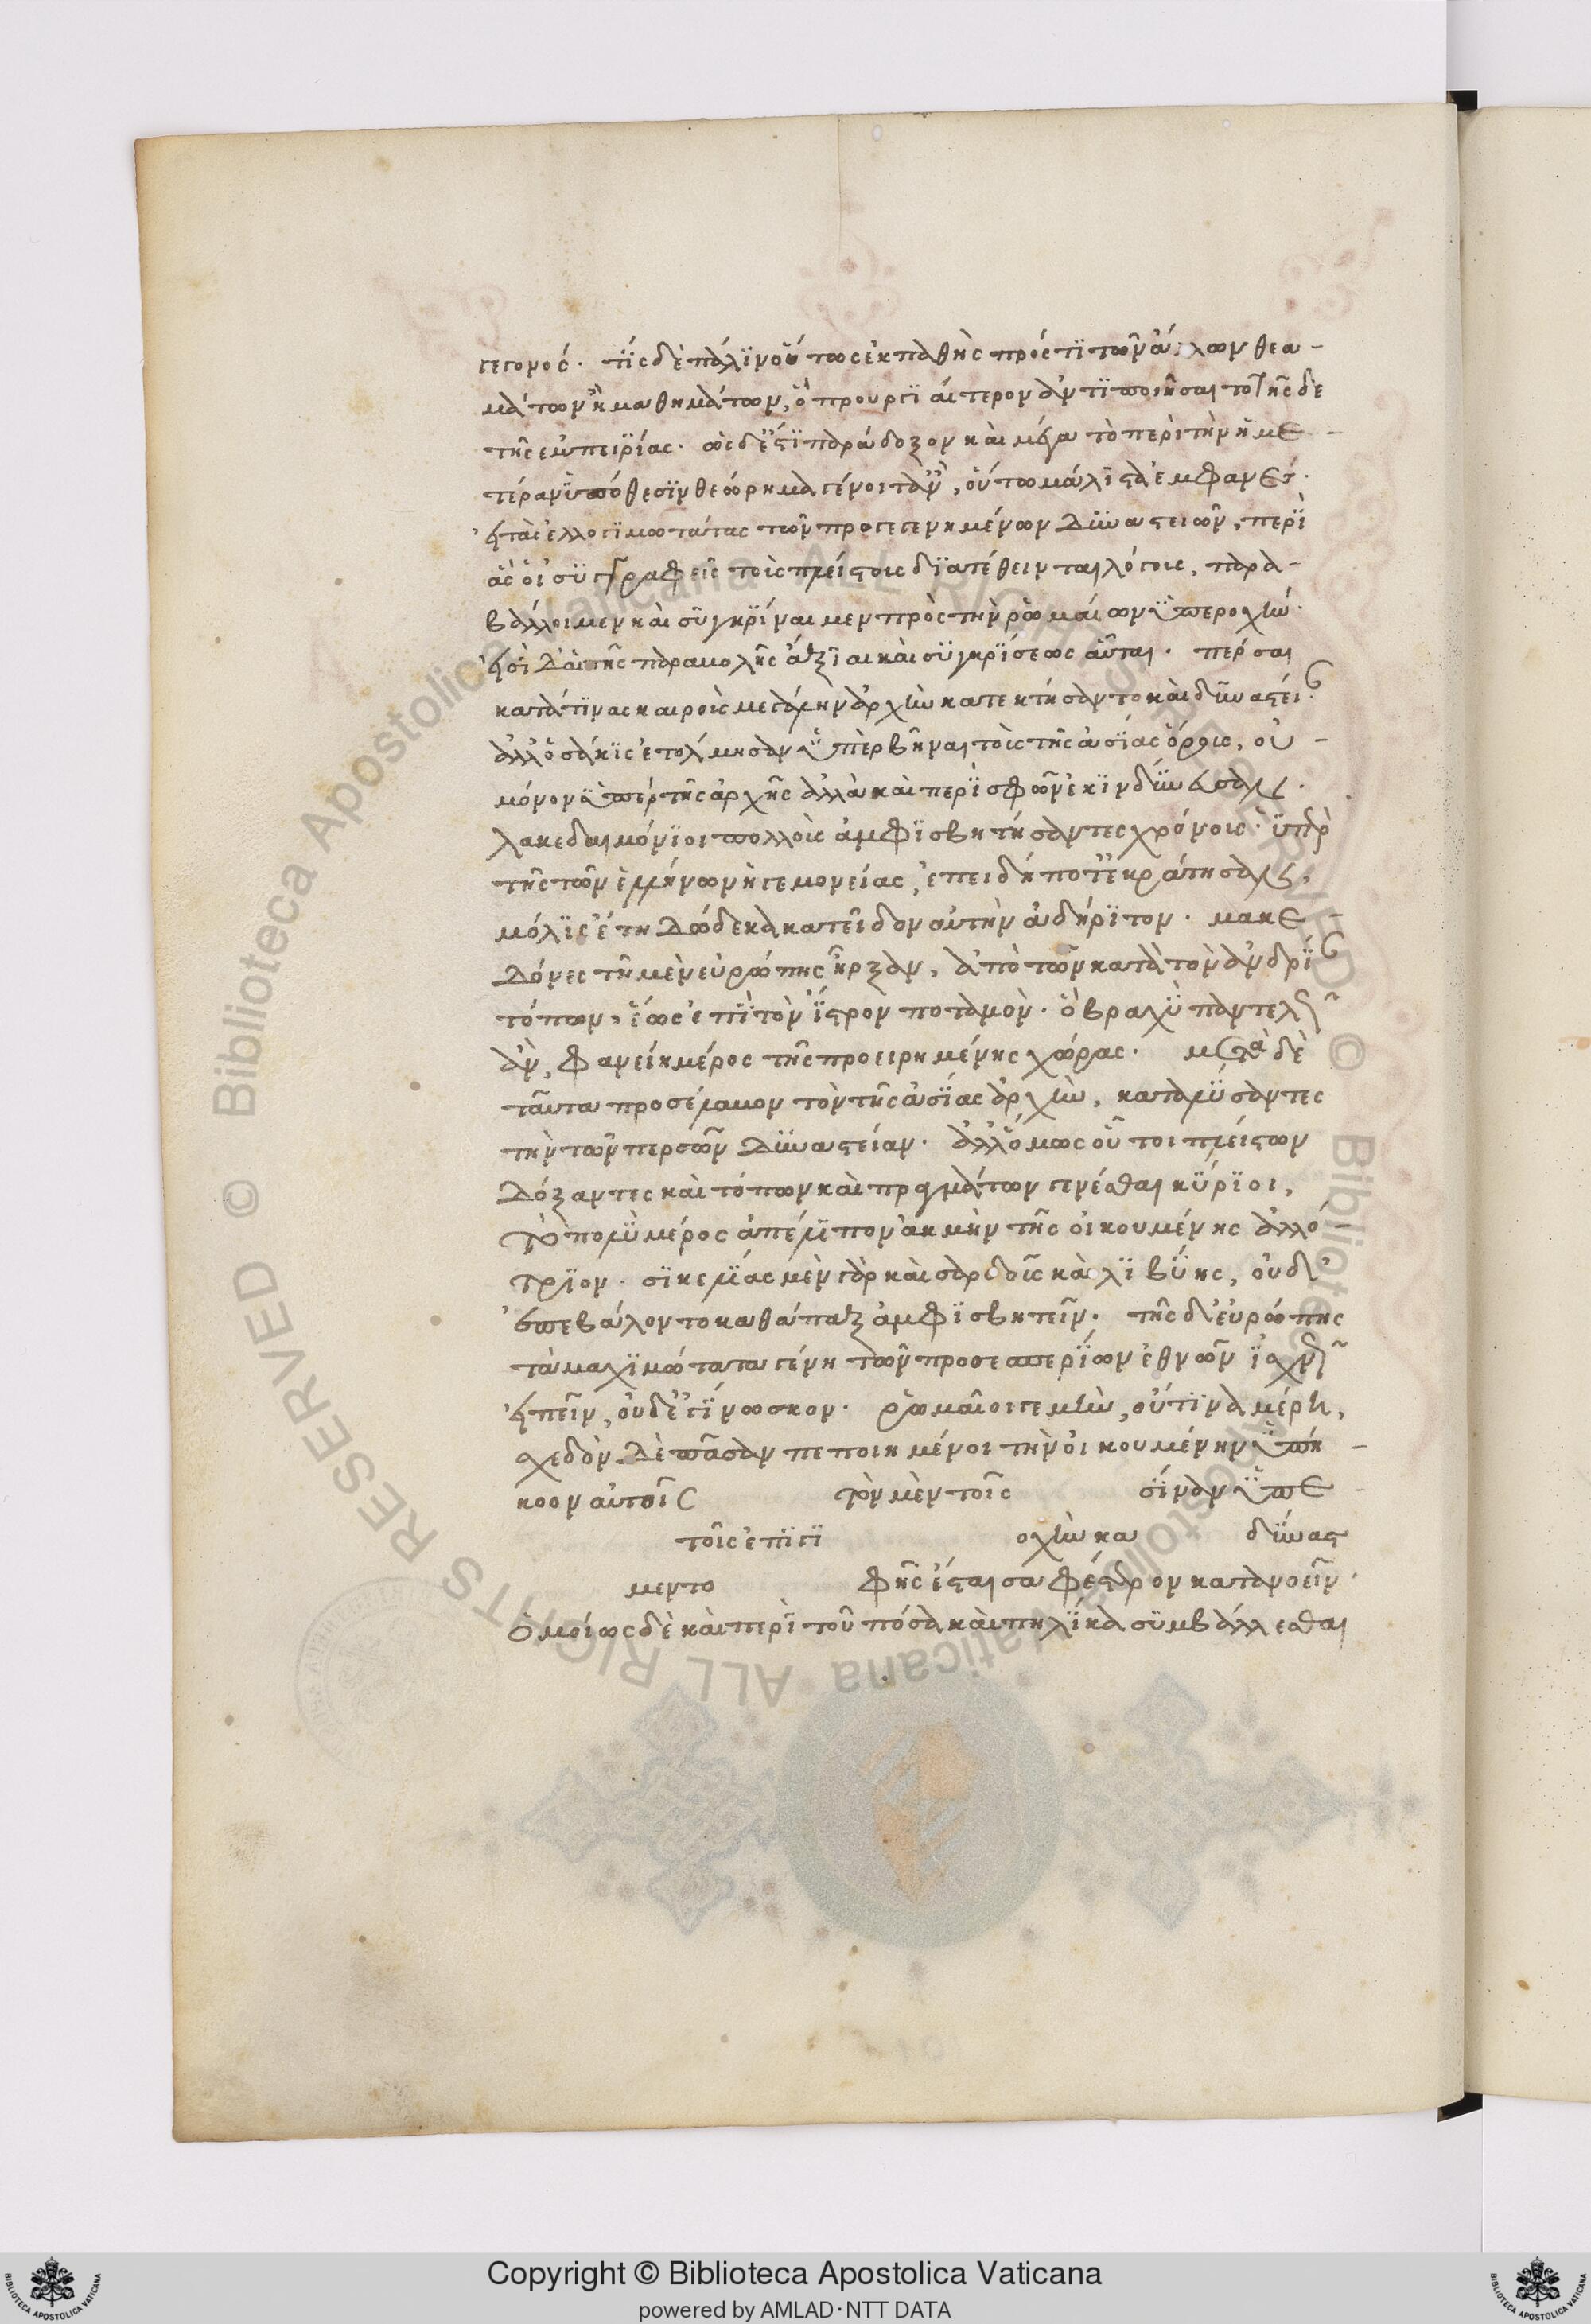 γεγονός. τίς δὲ πάλιν οὕτως ἐκπαθὴς πρός τι τῶν ἄλλων θεα-
μάτων ἢ μαθημάτων, ὃ προυργιαίτερον ἄν τι ποιήσαι το τῆσδε
τῆς ἐμπειρίας. ὡς δ' ἔστι παράδοξον καὶ μέγα τὸ περὶ τὴν ἡμε-
τέραν ὑπόθεσιν θεώρημα γένοιτ' ἂν, οὕτω μάλιστα ἐμφανές.
εἰ τὰς ἐλλογιμωτάτας τῶν προγεγενημένων δυναστειῶν, περὶ
ἃς οἱ συγγραφεῖς τοὺς πλείστους διατέθεινται λόγους, παρα-
βάλλοιμεν καὶ συγκρίναιμεν πρὸς τὴν ρωμαίων ὑπεροχήν.
εἰσὶ δ' αἱ τῆς παραβολῆς ἄξιαι καὶ συγκρίσεως αὗται. πέρσαι
κατά τινας καιροὺς μεγάλην ἀρχὴν κατεκτήσαντο καὶ δυναστείαν.
ἀλλ' ὁσάκις ἐτόλμησαν ὑπερβῆναι τοὺς τῆς ἀσίας ὅρους, οὐ
μόνον ὑπὲρ τῆς ἀρχῆς ἀλλὰ καὶ περὶ σφῶν ἐκινδύνευσαν.
λακεδαιμόνιοι πολλοὺς ἀμφισβητήσαντες χρόνους ὑπὲρ
τῆς τῶν ἑλλήνων ἡγεμονείας, ἐπειδή ποτ' ἐκράτησαν,
μόλις ἔτη δώδεκα κατεῖδον αὐτὴν ἀδήριτον. μακε-
δόνες τῆς μὲν εὐρώπης ἦρξαν, ἀπὸ τῶν κατὰ τὸν ἀνδρίαν
τόπων, ἕως ἐπὶ τὸν ἴστρον ποταμὸν. ὃ βραχὺ παντελῶς
ἂν, φανείη μέρος τῆς προειρημένης χώρας. μετὰ δὲ
ταῦτα προσέλαβον τὴν τῆς ἀσίας ἀρχὴν, καταλύσαντες
τὴν τῶν περσῶν δυναστείαν. ἀλλ' ὅμως οὗτοι πλείστων
δόξαντες καὶ τόπων καὶ πραγμάτων γενέσθαι κύριοι,
τὸ πολὺ μέρος ἀπέλιπον ἀκμὴν τῆς οἰκουμένης ἀλλό-
τριον. σικελίας μὲν γὰρ καὶ σαρδοῦς καὶ λιβύης, οὐδ'
ἐπεβάλοντο καθάπαξ ἀμφισβητεῖν. τῆς δ' εὐρώπης
τὰ μαχιμώτατα γένη τῶν προσεσπερίων ἐθνῶν ἰσχνῶς
εἰπεῖν, οὐδ' ἐγίνωσκον. ρωμαῖοί γε μὴν, οὔ τινα μέρη,
σχεδὸν δὲ πᾶσαν πεποιημένοι τὴν οἰκουμένην ὑπή-
κοον αὐτοῖς τὸν μὲν τοῖς σίναν ὑπε-
τοῖς ἐπιγι οχὴν κα δυνασ
μεντο φῆς ἔσται σαφέστερον κατανοεῖν.
ὁμοίως δὲ καὶ περὶ τοῦ πόσα καὶ πηλίκα συμβάλλεσθαι
Copyright © Biblioteca Apostolica Vaticana
powered by AMLAD·NTT DATA